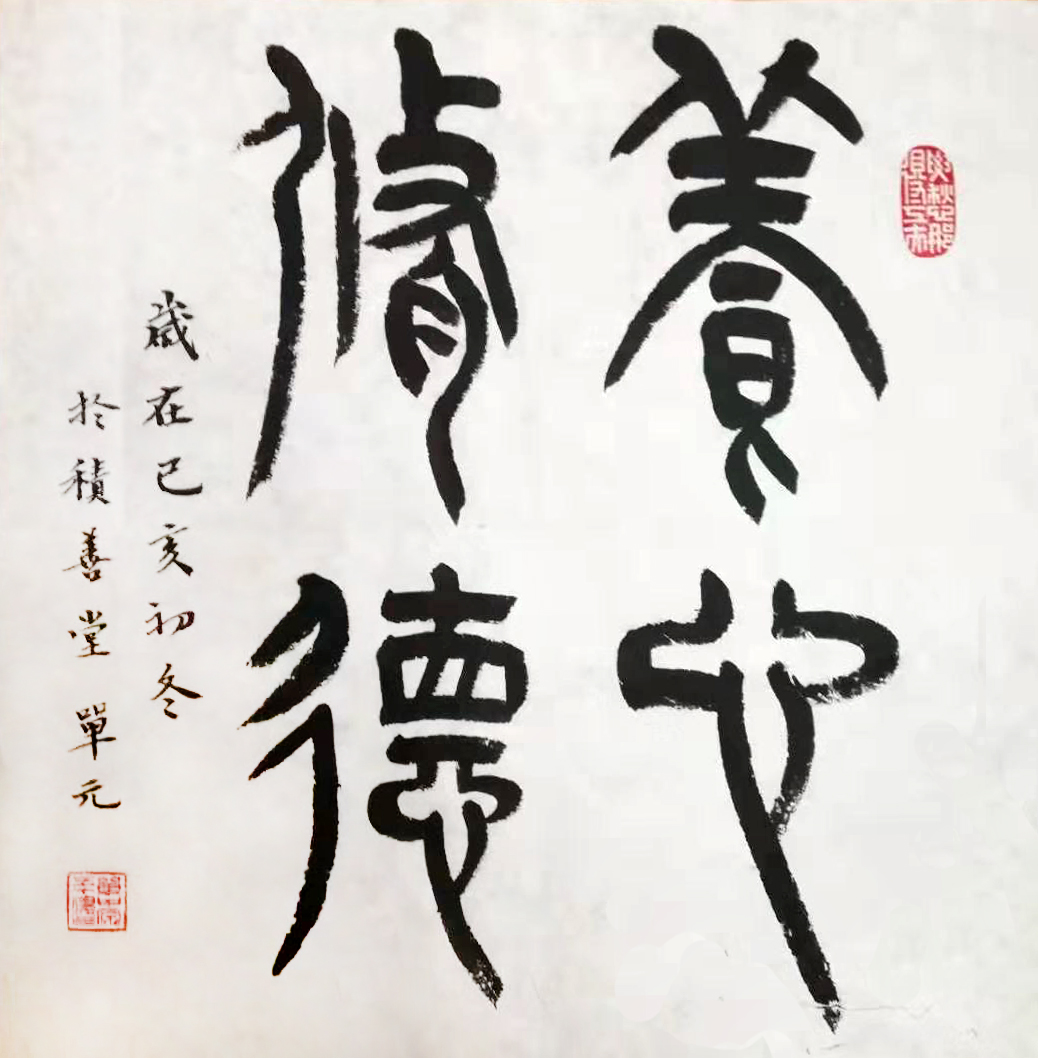 養心
脩德
歲在己亥初冬
於積善堂 單元